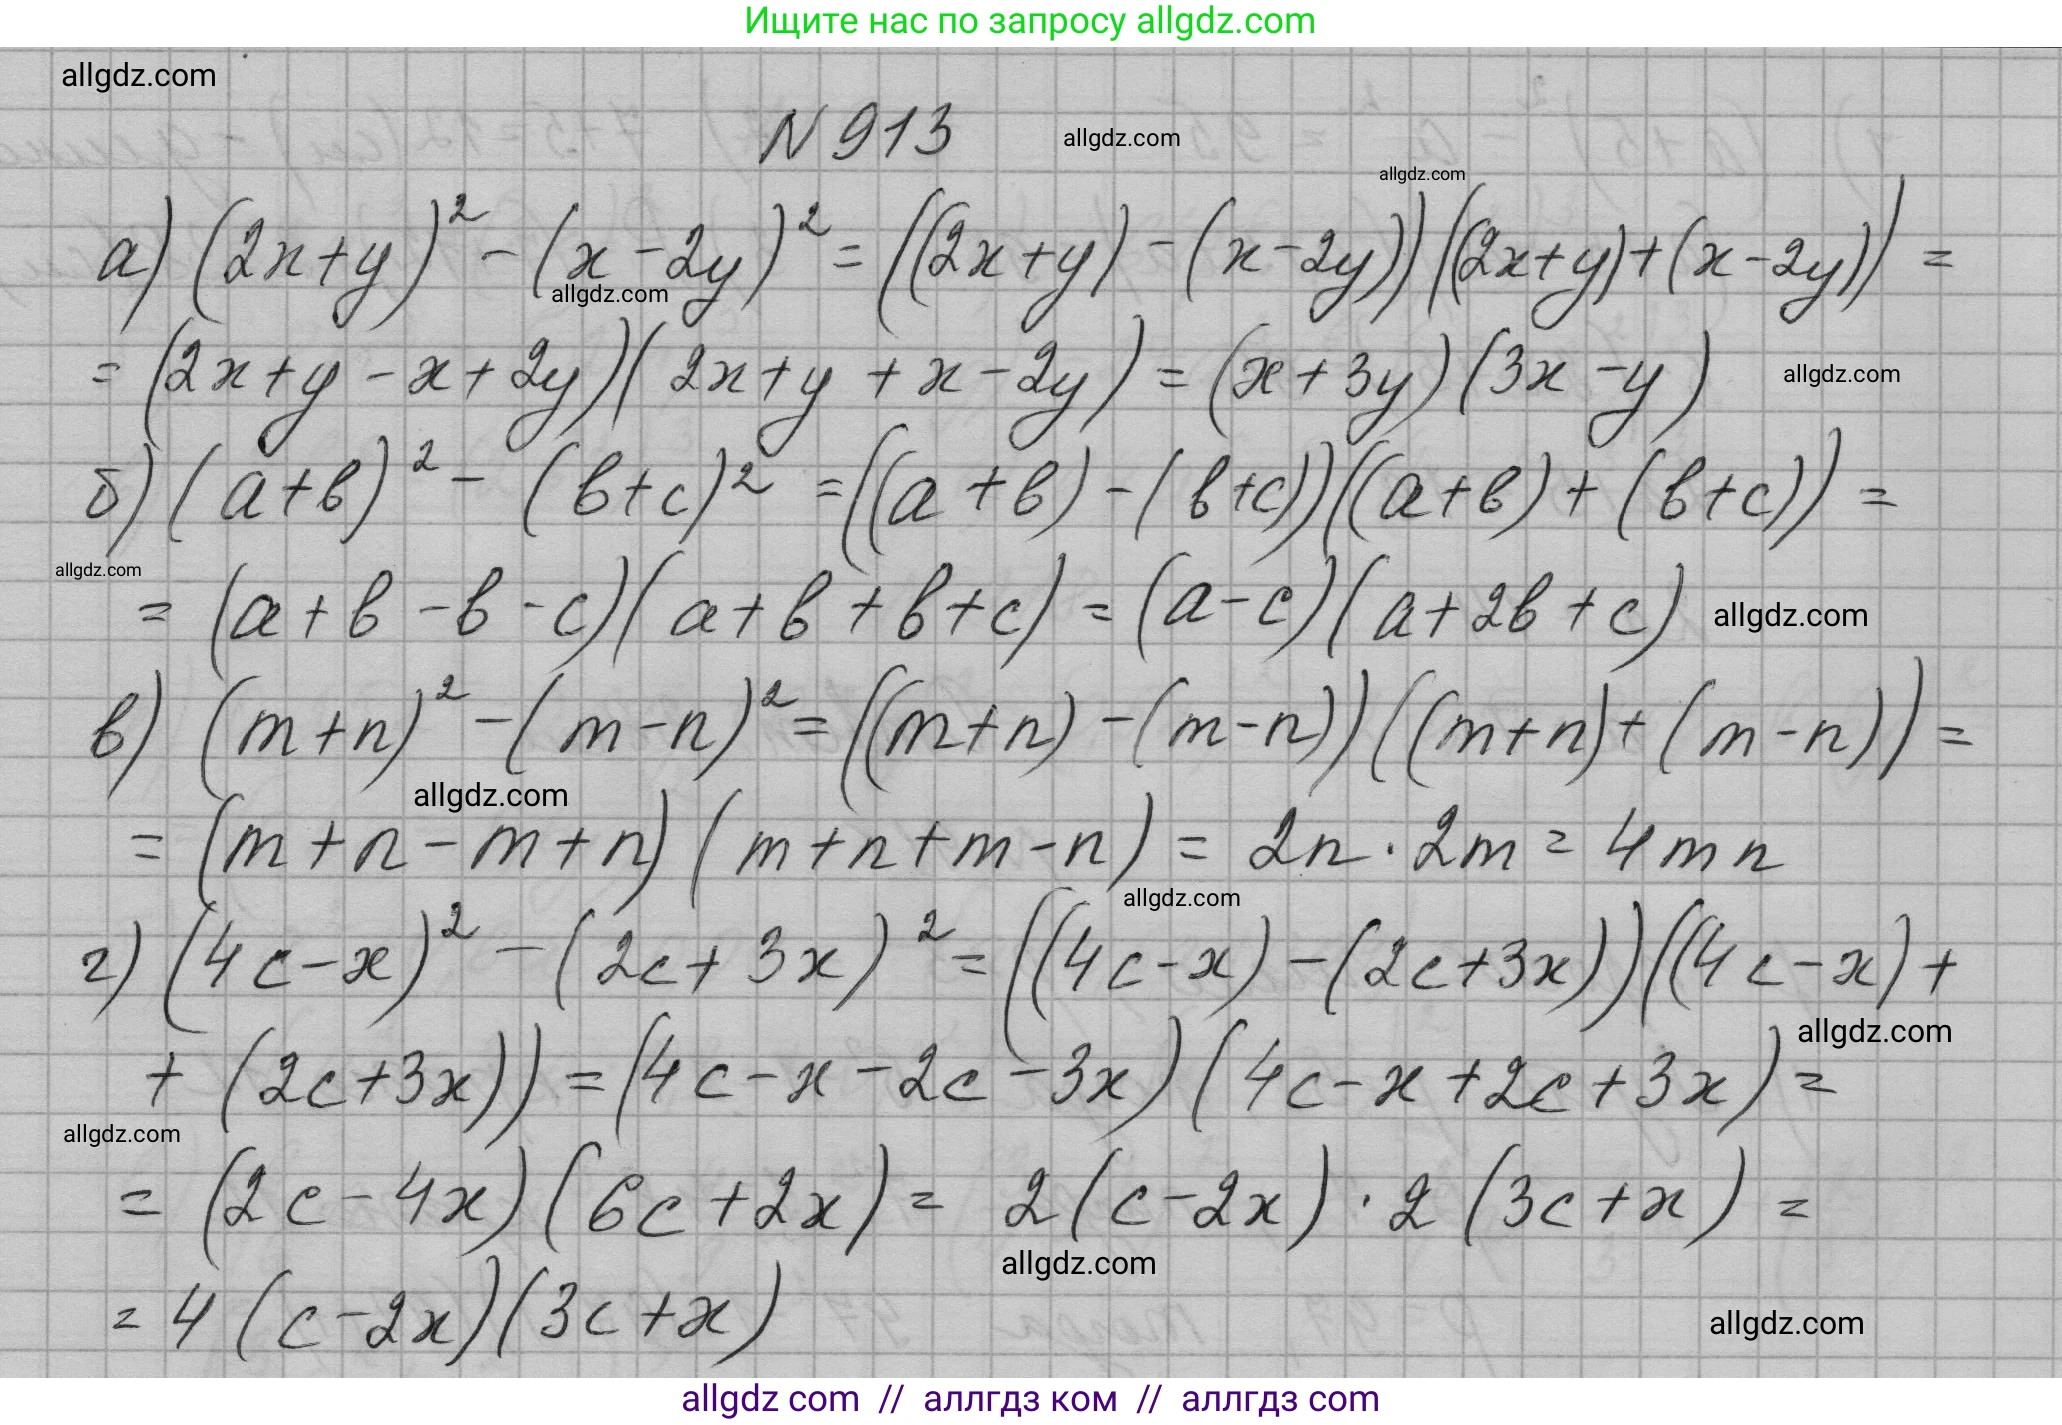 Ищите нас по запросу allgdz.com
allgdz.com
N 913 allgdz.com
allgdz.com
а) (2x+y)² - (x-2y)² = ((2x+y) - (x-2y))((2x+y)+(x-2y)) =
allgdz.com
= (2x+y-x+2y)(2x+y+x-2y) = (x+3y)(3x-y) allgdz.com
б) (a+в)² - (в+c)² = ((a+в) - (в+c))((a+в) + (в+c)) =
allgdz.com
= (a+в-в-c)(a+в+в+c) = (a-c)(a+2в+c) allgdz.com
в) (m+n)² - (m-n)² = ((m+n) - (m-n))((m+n) + (m-n)) =
allgdz.com
= (m+n-m+n)(m+n+m-n) = 2n · 2m = 4mn
allgdz.com
г) (4c-x)² - (2c+3x)² = ((4c-x) - (2c+3x))((4c-x) +
allgdz.com
+ (2c+3x)) = (4c-x-2c-3x)(4c-x+2c+3x) =
allgdz.com
= (2c-4x)(6c+2x) = 2(c-2x) · 2(3c+x) =
allgdz.com
= 4(c-2x)(3c+x) allgdz.com
allgdz com // аллгдз ком // аллгдз com